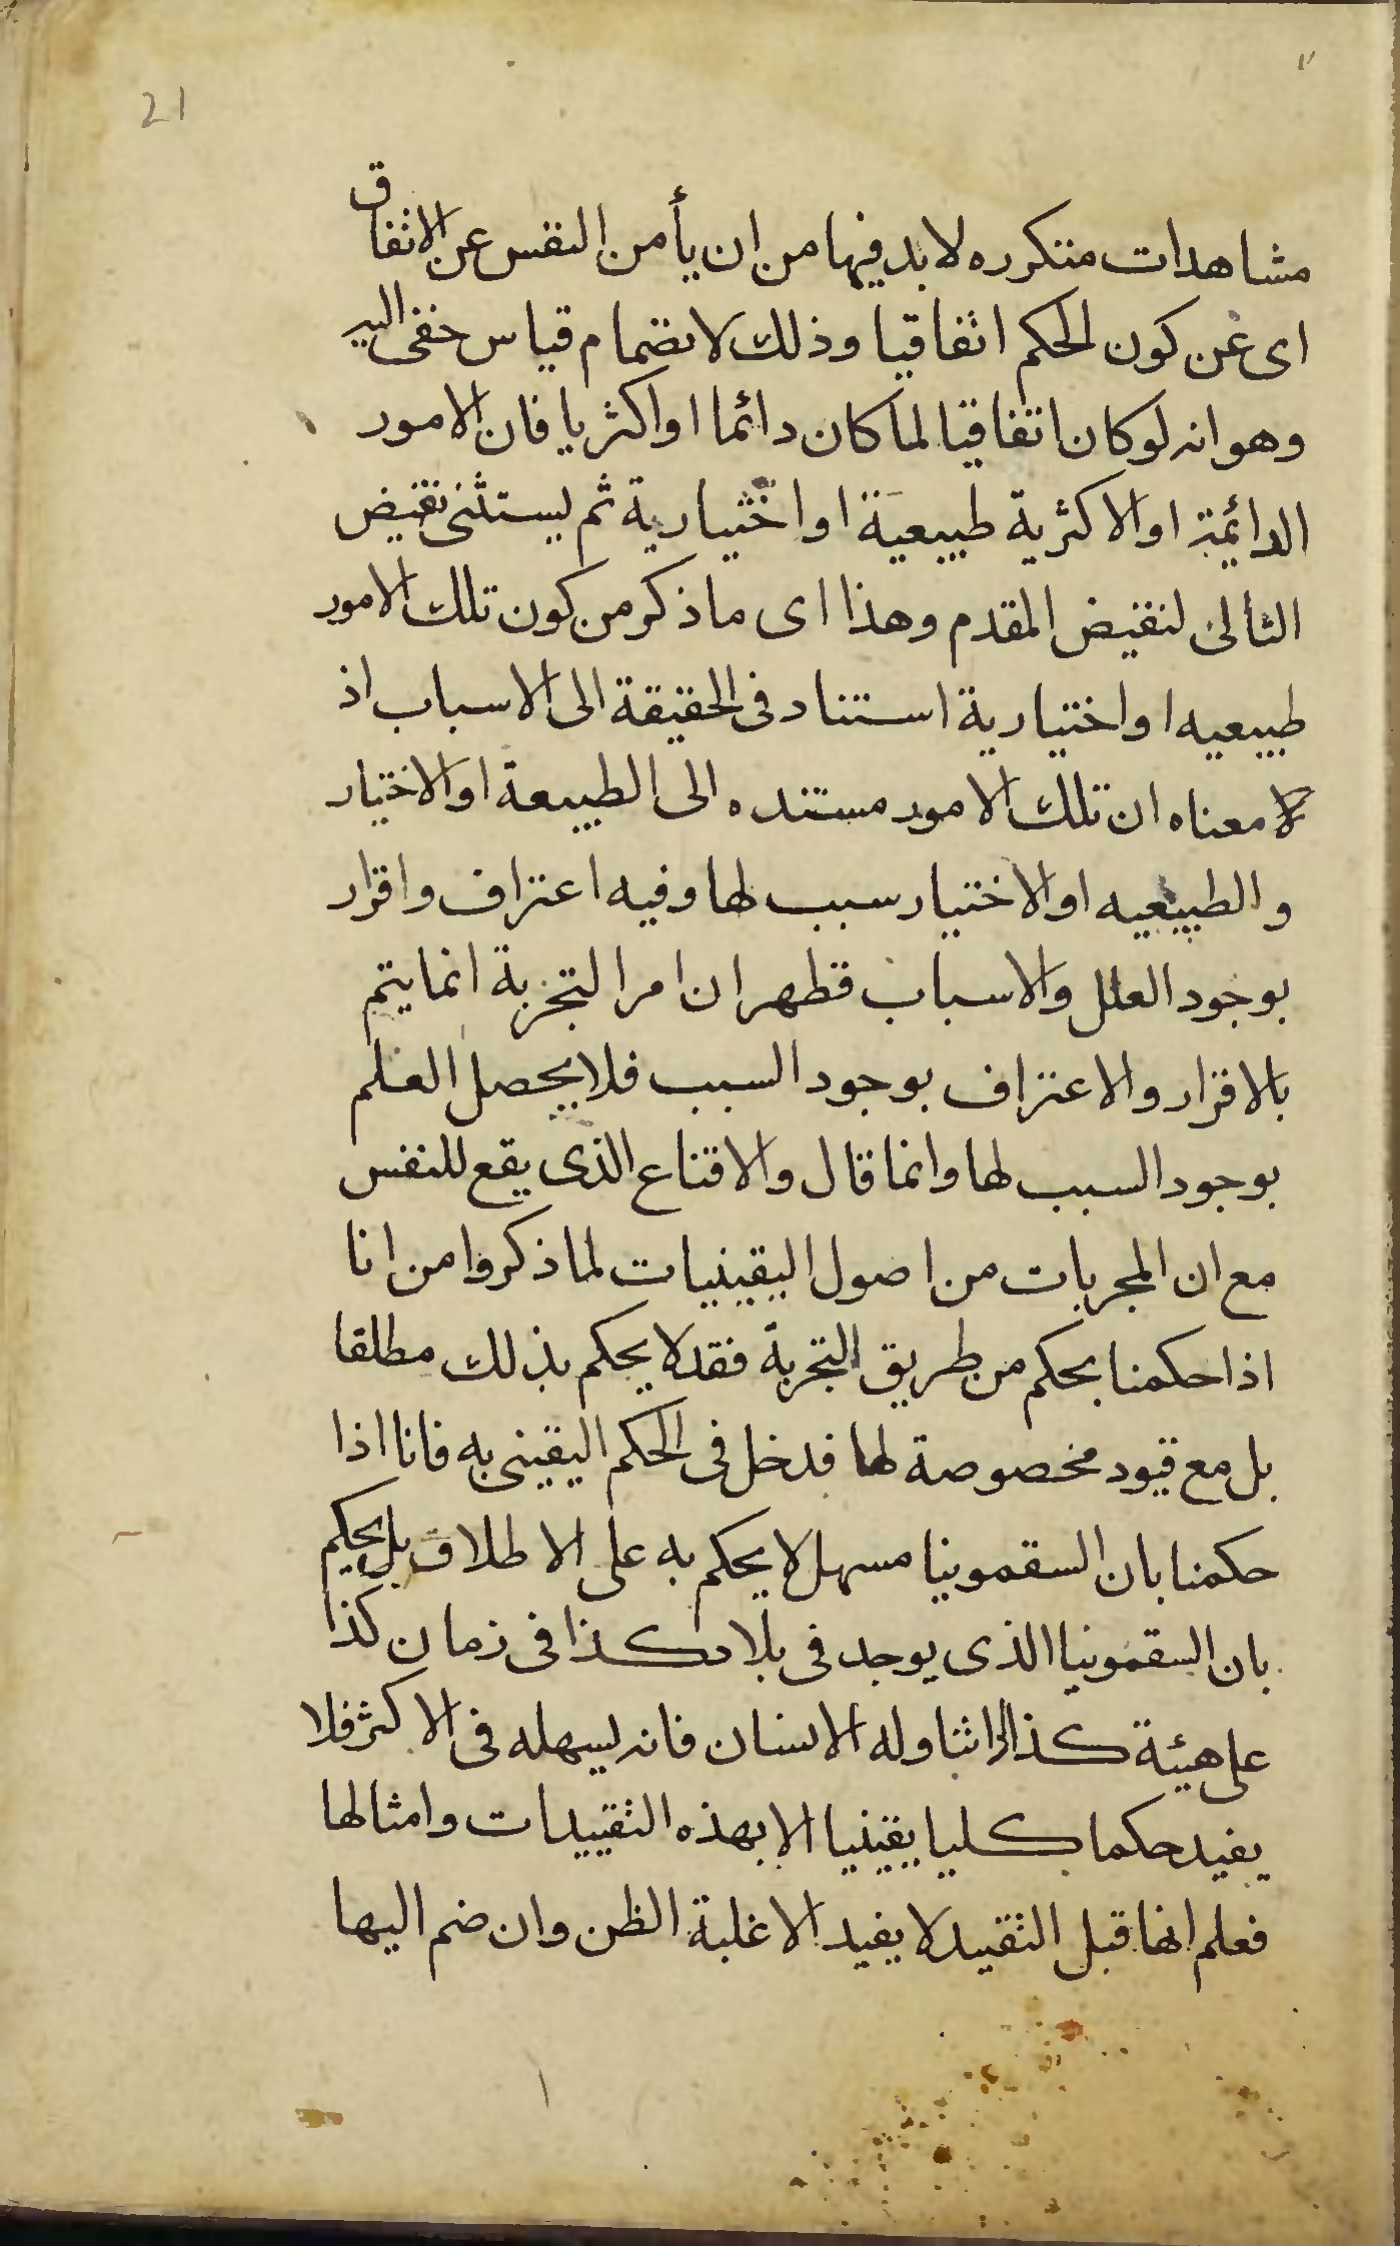 21
مشاهدات متكرره لابد فيها من ان يأمن النفس عن الاتفاق
اى عن كون الحكم اتفاقيا وذلك لانضمام قياس خفى اليه
وهو انه لو كان اتفاقيا لما كان دائما او اكثريا فان الامور
الدائمة او الاكثرية طبيعية او اختيارية ثم يستثنى نقيض
التالى لنقيض المقدم وهذا اى ما ذكر من كون تلك الامور
طبيعيه او اختيارية استناد فى الحقيقة الى الاسباب اذ
لامعناه ان تلك الامور مستنده الى الطبيعة او الاختيار
والطبيعيه او الاختيار سبب لها وفيه اعتراف واقرار
بوجود العلل والاسباب فظهر ان امر التجربة انما يتم
بالاقرار والاعتراف بوجود السبب فلا يحصل العلم
بوجود السبب لها وانما قال والاقناع الذى يقع للنفس
مع ان المجربات من اصول اليقينيات لما ذكروا من انا
اذا حكمنا بحكم من طريق التجربة فقد لا يحكم بذلك مطلقا
بل مع قيود مخصوصة لها فدخل فى الحكم اليقينى به فانا اذا
حكمنا بان السقمونيا مسهل لا يحكم به على الاطلاق بل يحكم
بان السقمونيا الذى يوجد فى بلاد كذا فى زمان كذا
على هيئة كذا اذا تناوله الانسان فانه يسهله فى الاكثر فلا
يفيد حكما كليا يقينيا الا بهذه التقييدات وامثالها
فعلم انها قبل التقييد لا يفيد الا غلبة الظن وان ضم اليها